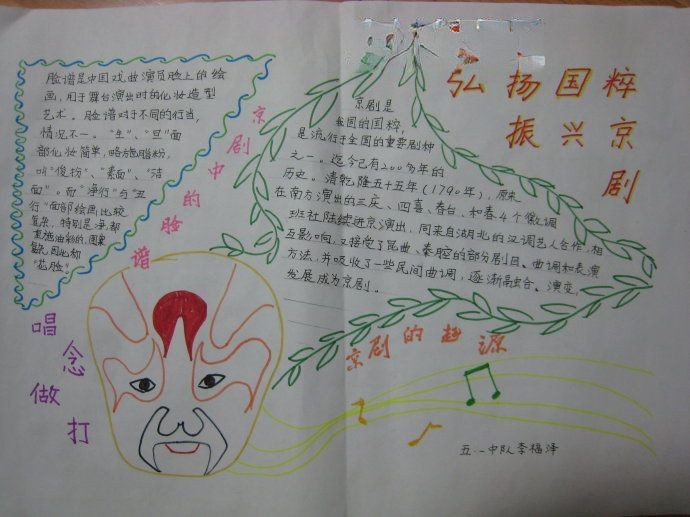 弘扬国粹
振兴京剧
脸谱是中国戏曲演员脸上的绘
画，用于舞台演出时的化妆造型
艺术。脸谱对于不同的行当，
情况不一。"生"、"旦"面
部化妆简单，略施脂粉，
叫"俊扮"、"素面"、"洁
面"。而"净行"与"丑
行"面部绘画比较
复杂，特别是净，都
重施油彩的，图案
复杂，因此称
"花脸"。
京剧中的脸谱
京剧是
我国的国粹，
是流行于全国的重要剧种
之一。迄今已有200多年的
历史。清乾隆五十五年（1790年），原来
在南方演出的三庆、四喜、春台、和春4个徽调
班社陆续进京演出，同来自湖北的汉调艺人合作，相
互影响，又接受了昆曲、秦腔的部分剧目、曲调和表演
方法，并吸收了一些民间曲调，逐渐融合、演变，
发展成为京剧。
京剧的起源
唱
念
做
打
五.一中队李福泽